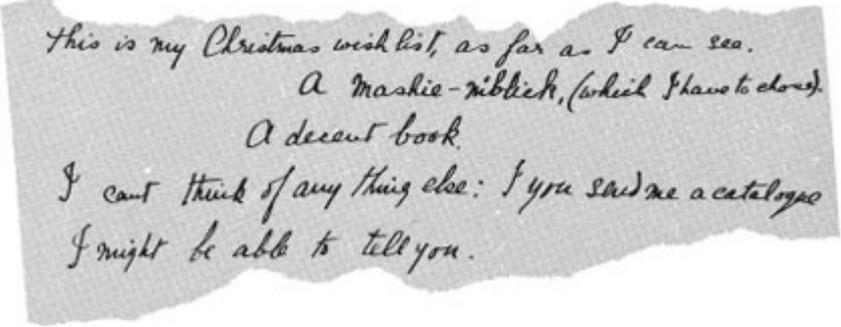 this is my Christmas wish list, as far as I can see.
A mashie-niblick, (which I have to chose).
A decent book.
I cant think of any thing else: I you send me a catalogue
I might be able to tell you.